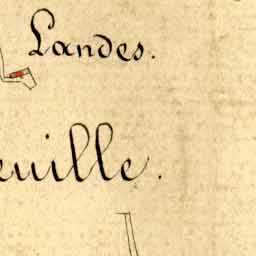 Landes.
euille.